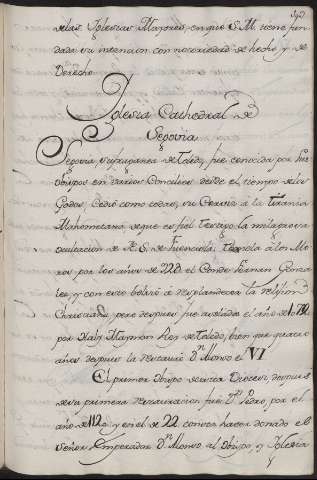 delas Iglesias Mayores, en que S. M. tiene fun
dada su intencion con notoriedad de hecho, y de
Derecho.
Iglesia Cathedral de
Segovia
Segovia sufraganea de Toledo, fue conocida por sus
Obispos en varios Concilios desde el tiempo delos
Godos, Cedió como todas, su Cerviz á la tirania
Mahometana, de que es fiel testigo la milagrosa
ocultacion de N. S. de Fuencisla. Ganola á los Mo
ros por los años de 923. el Conde Fernan Gonza
lez, y con esto bolvió á resplandecer la religion
Christiana, pero despues fue asolada el año de 1072
por Haly Maymon Rey de Toledo, bien que quatro
años despues la restauró Dn. Alonso el VI
El primer Obispo de esta Diocesi, despues
de su primera restauracion fue Dn. Pedro, por el
año de 1120 y en el de 22 consta haver donado el
Señor Emperador Dn. Alonso, al Obispo, y Iglesia